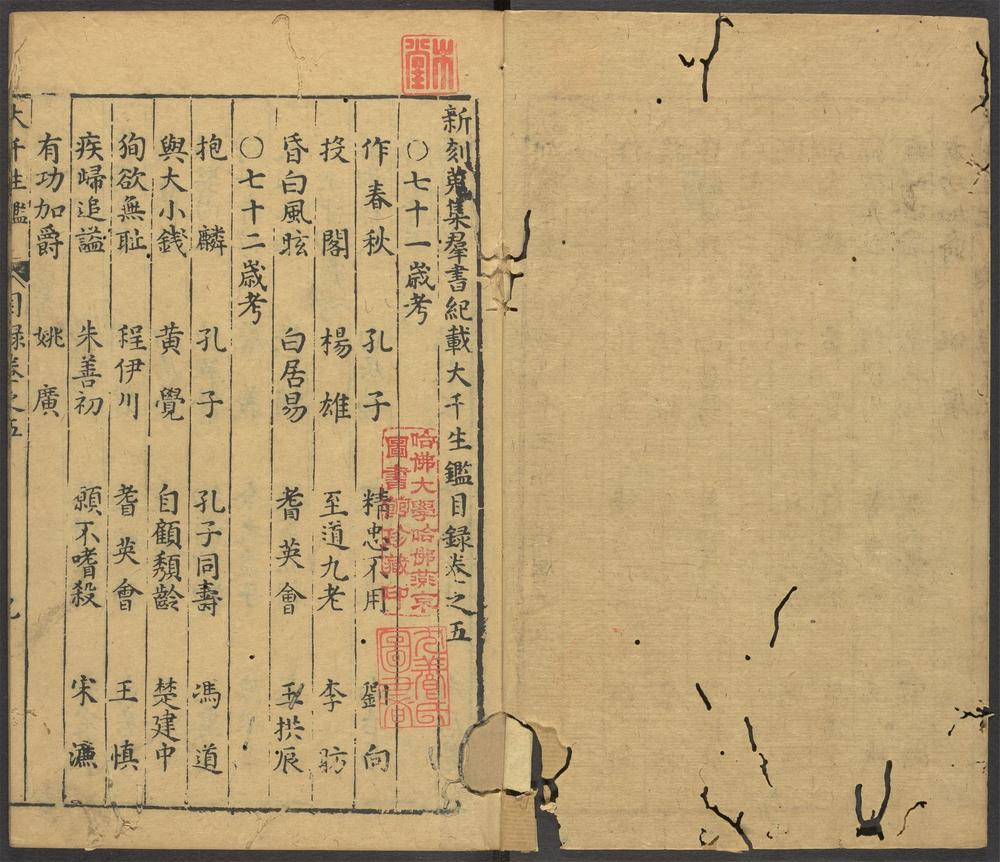 新刻蒐集羣書紀載大千生鑑目録卷之五
○七十一歳考
作春秋 孔子 精忠不用 劉向
投閣 楊雄 至道九老 李昉
昏白風眩 白居易 耆英會 王拱辰
○七十二歳考
抱麟 孔子 孔子同壽 馮道
與大小銭 黄覺 自顧頽齡 楚建中
狥欲無恥 程伊川 耆英會 王慎
疾歸追謚 朱善初 願不嗜殺 宋濂
有功加爵 姚廣
大千生鑑 目録卷之五
哈佛大學哈佛燕京
圖書館珍藏印